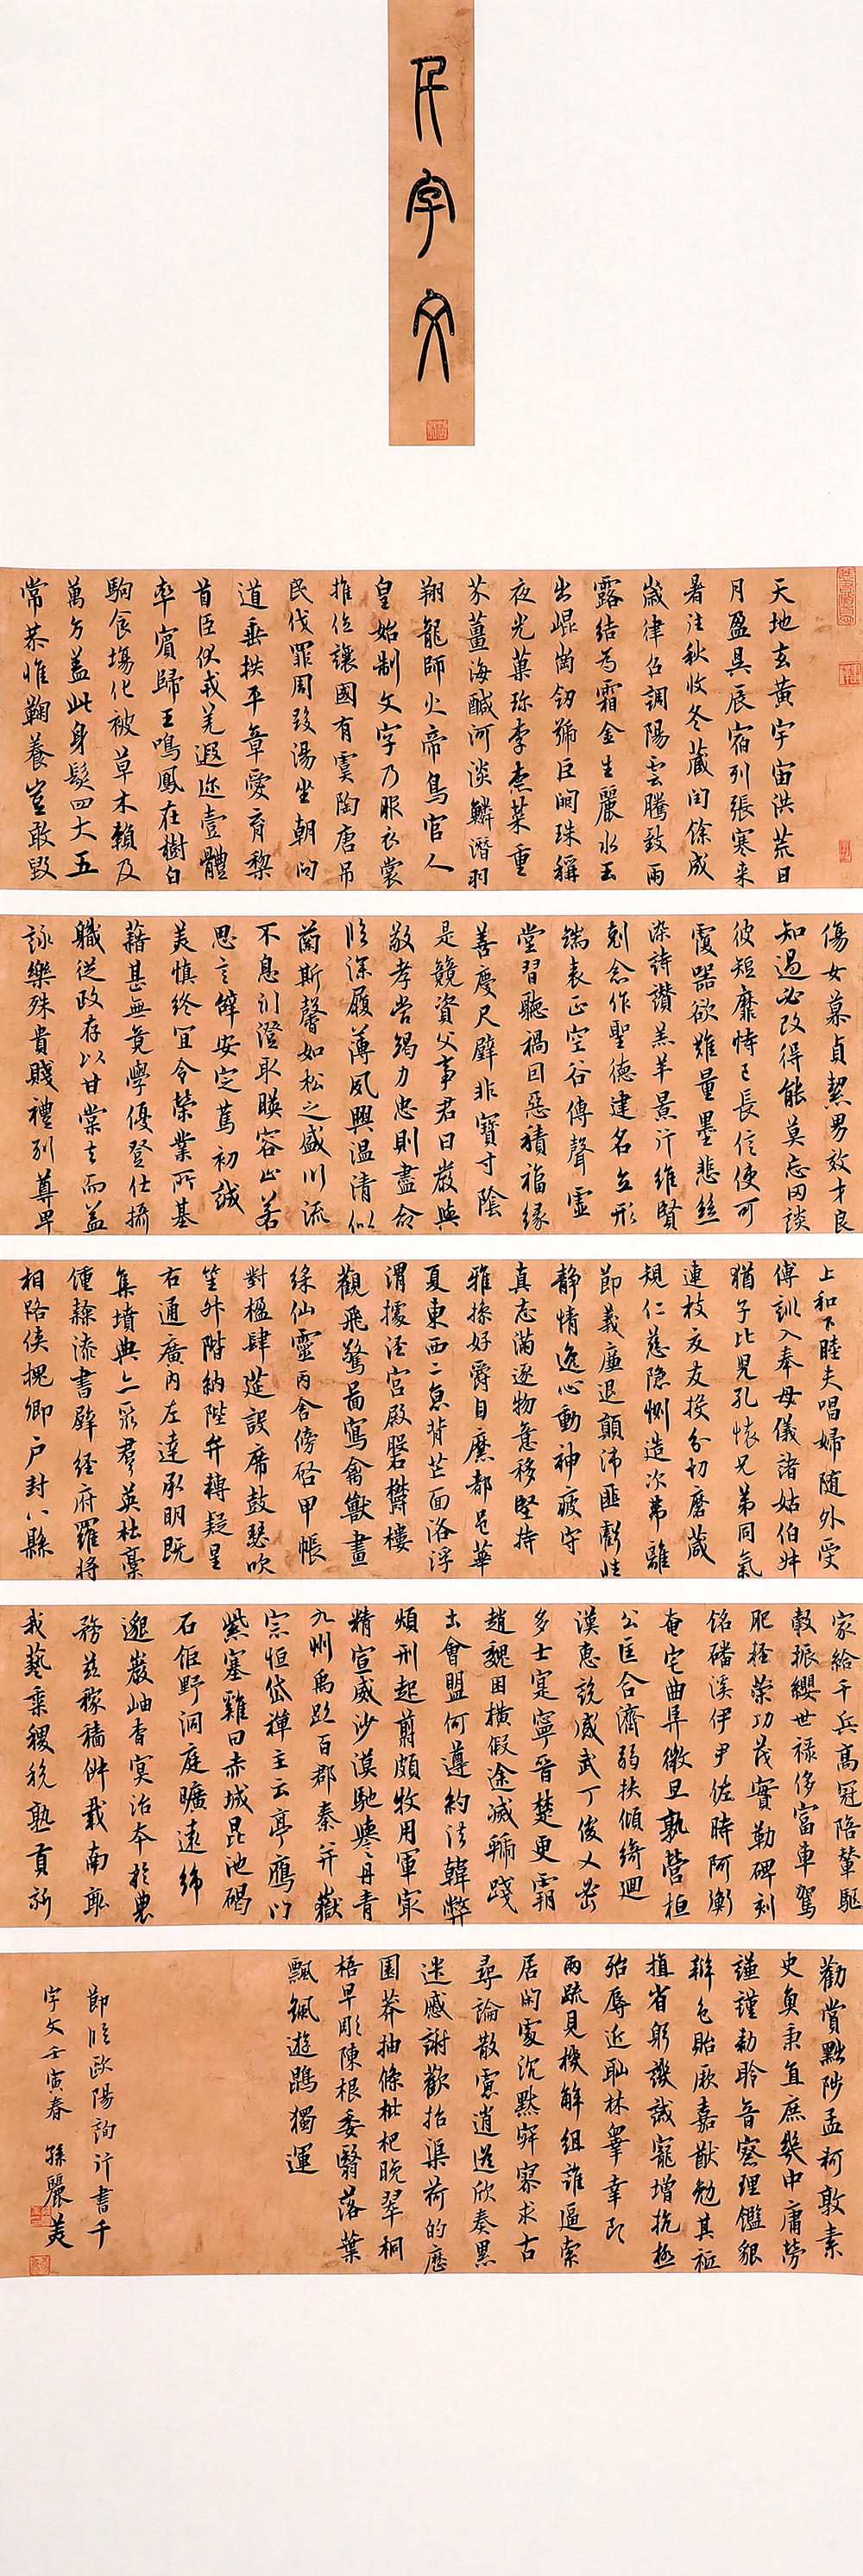 千字文
天地玄黃宇宙洪荒日
月盈昃辰宿列張寒來
暑往秋收冬藏閏餘成
歲律召調陽雲騰致雨
露結為霜金生麗水玉
出崐崗劒號巨闕珠稱
夜光菓珍李柰菜重
芥薑海鹹河淡鱗潛羽
翔龍師火帝鳥官人
皇始制文字乃服衣裳
推位讓國有虞陶唐弔
民伐罪周發湯坐朝問
道垂拱平章愛育黎
首臣伏戎羌遐迩壹體
率賓歸王鳴鳳在樹白
駒食場化被草木賴及
萬方蓋此身髮四大五
常恭惟鞠養豈敢毀
傷女慕貞絜男效才良
知過必改得能莫忘罔談
彼短靡恃己長信使可
覆器欲難量墨悲絲
染詩讚羔羊景行維賢
剋念作聖德建名立形
端表正空谷傳聲虛
堂習聽禍因惡積福緣
善慶尺璧非寶寸陰
是競資父事君曰嚴與
敬孝當竭力忠則盡命
臨深履薄夙興温凊似
蘭斯馨如松之盛川流
不息川澄取暎容止若
思言辭安定篤初誠
美慎終宜令榮業所基
藉甚無竟學優登仕攝
職從政存以甘棠去而益
詠樂殊貴賤禮別尊卑
上和下睦夫唱婦隨外受
傅訓入奉母儀諸姑伯叔
猶子比兒孔懷兄弟同氣
連枝交友投分切磨箴
規仁慈隱惻造次弗離
節義廉退顛沛匪虧性
靜情逸心動神疲守
真志滿逐物意移堅持
雅操好爵自縻都邑華
夏東西二京背芒面洛浮
渭據涇宮殿磐欝樓
觀飛驚圖寫禽獸畫
綵仙靈丙舍傍啓甲帳
對楹肆筵設席鼓瑟吹
笙升階納陛弁轉疑星
右通廣內左達承明既
集墳典亦聚羣英杜稾
鍾隸漆書壁經府羅將
相路俠槐卿户封八縣
家給千兵高冠陪輦驅
轂振纓世祿侈富車駕
肥輕榮功茂實勒碑刻
銘磻溪伊尹佐時阿衡
奄宅曲阜微旦孰營桓
公匡合濟弱扶傾綺迴
漢惠說感武丁俊乂密
多士寔寧晉楚更霸
趙魏困橫假途滅虢踐
土會盟何遵約法韓弊
煩刑起翦頗牧用軍最
精宣威沙漠馳譽丹青
九州禹跡百郡秦并嶽
宗恒岱禪主云亭鴈門
紫塞雞田赤城昆池碣
石鉅野洞庭曠遠綿
邈巖岫杳冥治本於農
務茲稼穡俶載南畝
我藝黍稷稅熟貢新
勸賞黜陟孟軻敦素
史魚秉直庶幾中庸勞
謙謹勑聆音察理鑑貌
辯色貽厥嘉猷勉其祗
植省躬譏誡寵增抗極
殆辱近恥林皐幸即
兩疏見機解組誰逼索
居閑處沉默寂寥求古
尋論散慮逍遙欣奏累
遣慼謝歡招渠荷的歷
園莽抽條枇杷晚翠桐
梧早彫陳根委翳落葉
飄颻遊鵾獨運
節臨歐陽詢行書千
字文壬寅春 孫麗美